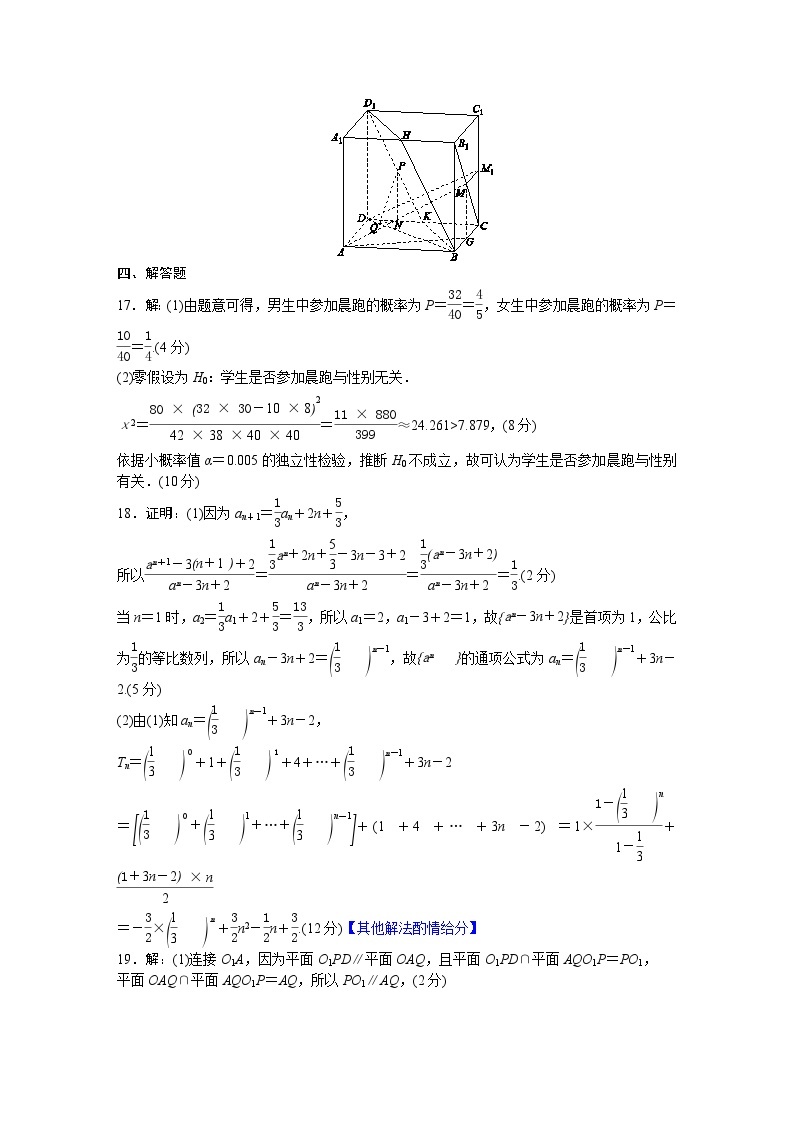 D₁ C₁
A₁ H B₁
P M₁
M
D Q N K C
G
A B
四、解答题
17．解：(1)由题意可得，男生中参加晨跑的概率为 P＝32/40＝4/5，女生中参加晨跑的概率为 P＝
10/40＝1/4.(4 分)
(2)零假设为 H₀：学生是否参加晨跑与性别无关．
x²＝80 × (32 × 30－10 × 8)²/42 × 38 × 40 × 40＝11 × 880/399≈24.261>7.879，(8 分)
依据小概率值 α＝0.005 的独立性检验，推断 H₀ 不成立，故可认为学生是否参加晨跑与性别
有关．(10 分)
18．证明：(1)因为 aₙ₊₁＝1/3aₙ＋2n＋5/3，
所以 aⁿ⁺¹－3(n＋1 )＋2/aⁿ－3n＋2＝1/3aⁿ＋2n＋5/3－3n－3＋2/aⁿ－3n＋2＝1/3(aⁿ－3n＋2)/aⁿ－3n＋2＝1/3.(2 分)
当 n＝1 时，a₂＝1/3a₁＋2＋5/3＝13/3，所以 a₁＝2，a₁－3＋2＝1，故{aⁿ－3n＋2}是首项为 1，公比
为1/3的等比数列，所以 aₙ－3n＋2＝(1/3)ⁿ⁻¹，故{aⁿ }的通项公式为 aₙ＝(1/3)ⁿ⁻¹＋3n－
2.(5 分)
(2)由(1)知 aₙ＝(1/3)ⁿ⁻¹＋3n－2，
Tₙ＝(1/3)⁰＋1＋(1/3)¹＋4＋…＋(1/3)ⁿ⁻¹＋3n－2
＝[(1/3)⁰＋(1/3)¹＋…＋(1/3)ⁿ⁻¹]＋(1 ＋4 ＋… ＋3n －2) ＝1×1－(1/3)ⁿ/1－1/3＋
(1＋3n－2) × n/2
＝－3/2×(1/3)ⁿ＋3/2n²－1/2n＋3/2.(12 分)【其他解法酌情给分】
19．解：(1)连接 O₁A，因为平面 O₁PD∥平面 OAQ，且平面 O₁PD∩平面 AQO₁P＝PO₁，
平面 OAQ∩平面 AQO₁P＝AQ，所以 PO₁∥AQ，(2 分)